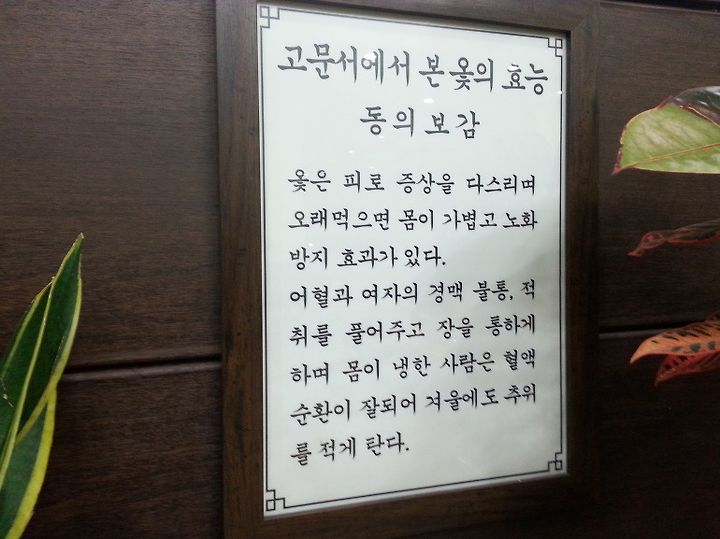 고문서에서 본 옻의 효능
동의보감
옻은 피로 증상을 다스리며
오래먹으면 몸이 가볍고 노화
방지 효과가 있다.
어혈과 여자의 경맥 불통, 적
취를 풀어주고 장을 통하게
하며 몸이 냉한 사람은 혈액
순환이 잘되어 겨울에도 추위
를 적게 탄다.